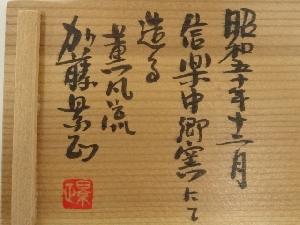 昭和五十年十二月
信楽中郷窯にて
造る
薫風流
加藤景